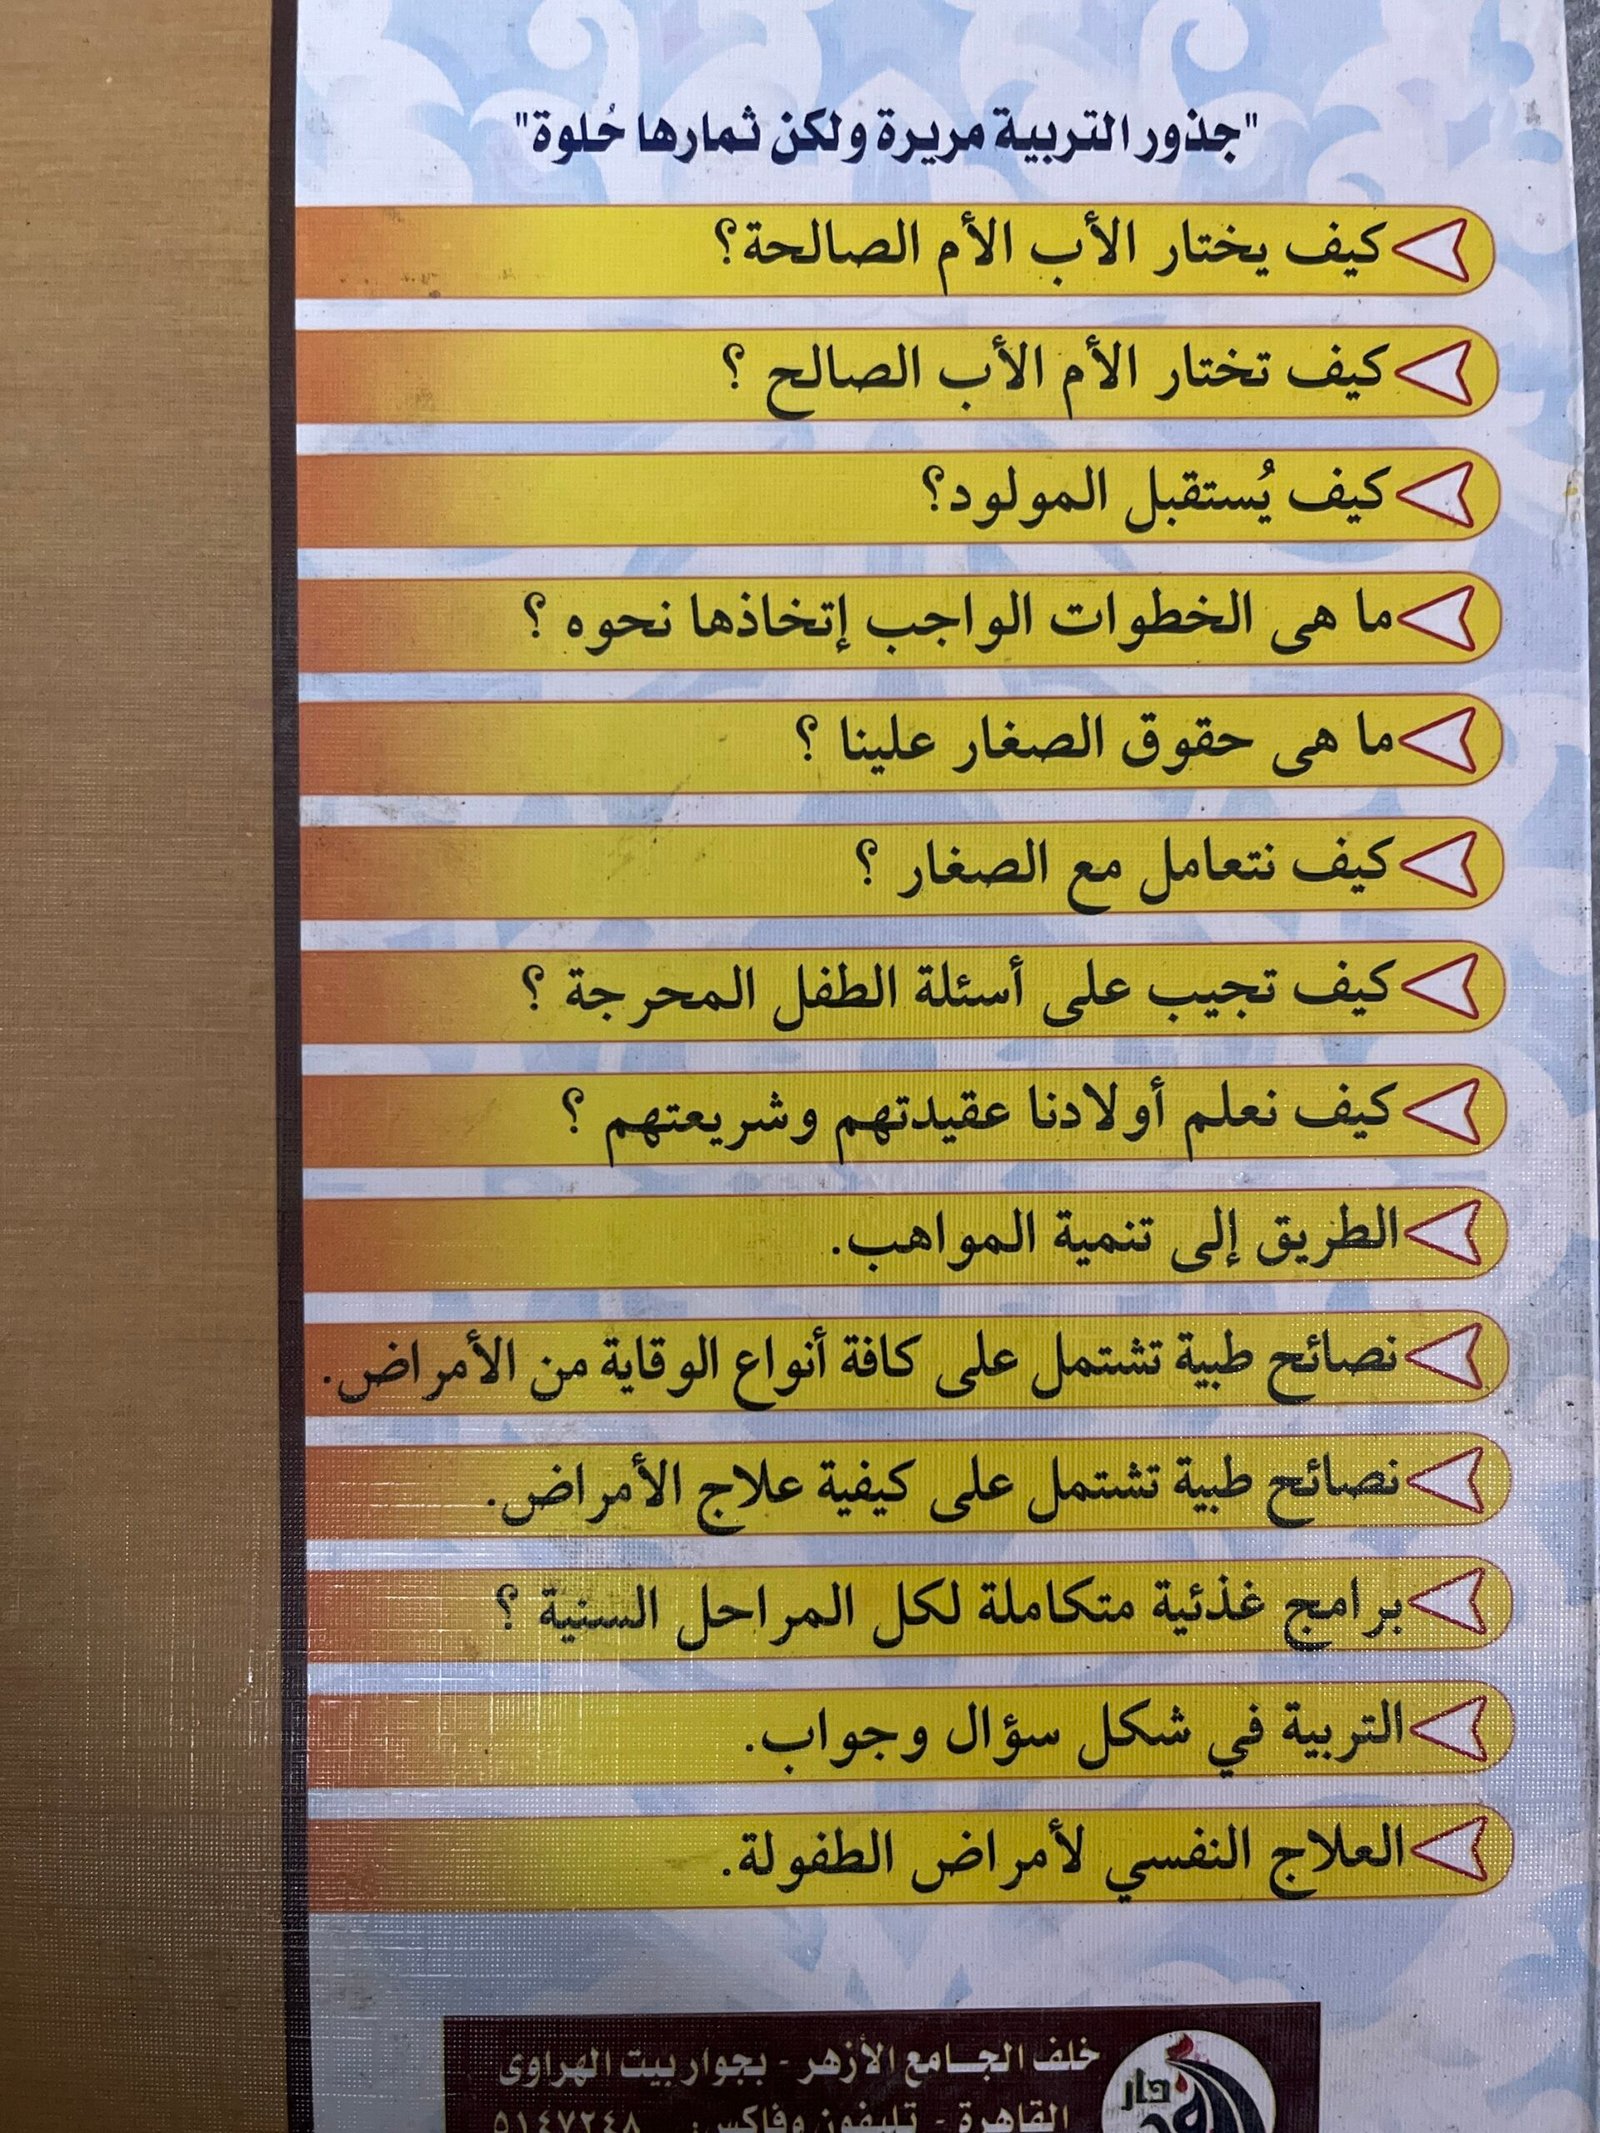 "جذور التربية مريرة ولكن ثمارها حُلوة"
كيف يختار الأب الأم الصالحة؟
كيف تختار الأم الأب الصالح ؟
كيف يُستقبل المولود؟
ما هى الخطوات الواجب إتخاذها نحوه ؟
ما هى حقوق الصغار علينا ؟
كيف نتعامل مع الصغار ؟
كيف تجيب على أسئلة الطفل المحرجة ؟
كيف نعلم أولادنا عقيدتهم وشريعتهم ؟
الطريق إلى تنمية المواهب.
نصائح طبية تشتمل على كافة أنواع الوقاية من الأمراض.
نصائح طبية تشتمل على كيفية علاج الأمراض.
برامج غذئية متكاملة لكل المراحل السنية ؟
التربية في شكل سؤال وجواب.
العلاج النفسي لأمراض الطفولة.
خلف الجامع الأزهر - بجوار بيت الهراوى
القاهرة - تليفون وفاكس: ٥١٤٧٢٤٨
دار